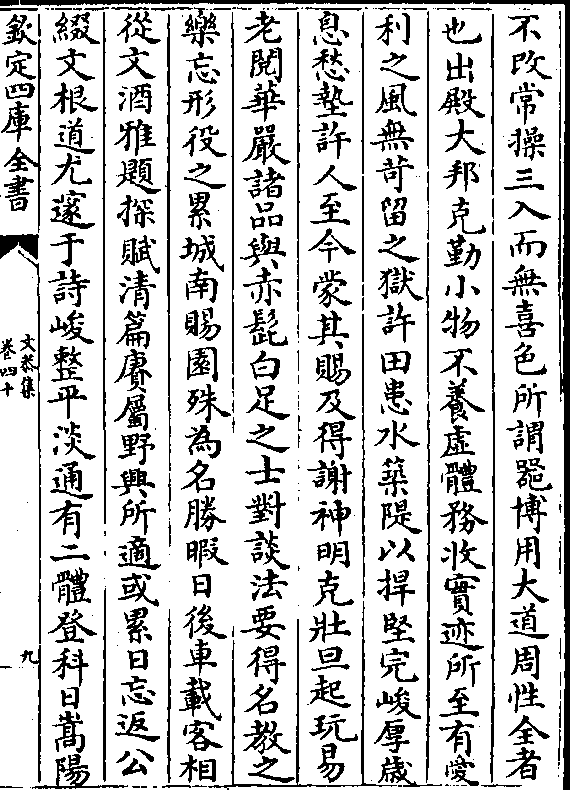 不改常操三入而無喜色所謂器博用大道周性全者
也出殿大邦克勤小物不養虛體務收實迹所至有愛
利之風無苛留之獄許田患水築隄以捍堅完峻厚歲
息愁墊許人至今蒙其賜及得謝神明克壯旦起玩易
老閱華嚴諸品與赤髭白足之士對談法要得名教之
樂忘形役之累城南賜園殊為名勝暇日後車載客相
從文酒雅題探賦清篇賡屬野興所適或累日忘返公
綴文根道尤邃于詩峻整平淡通有二體登科日嵩陽
欽定四庫全書
文恭集
卷四十
九